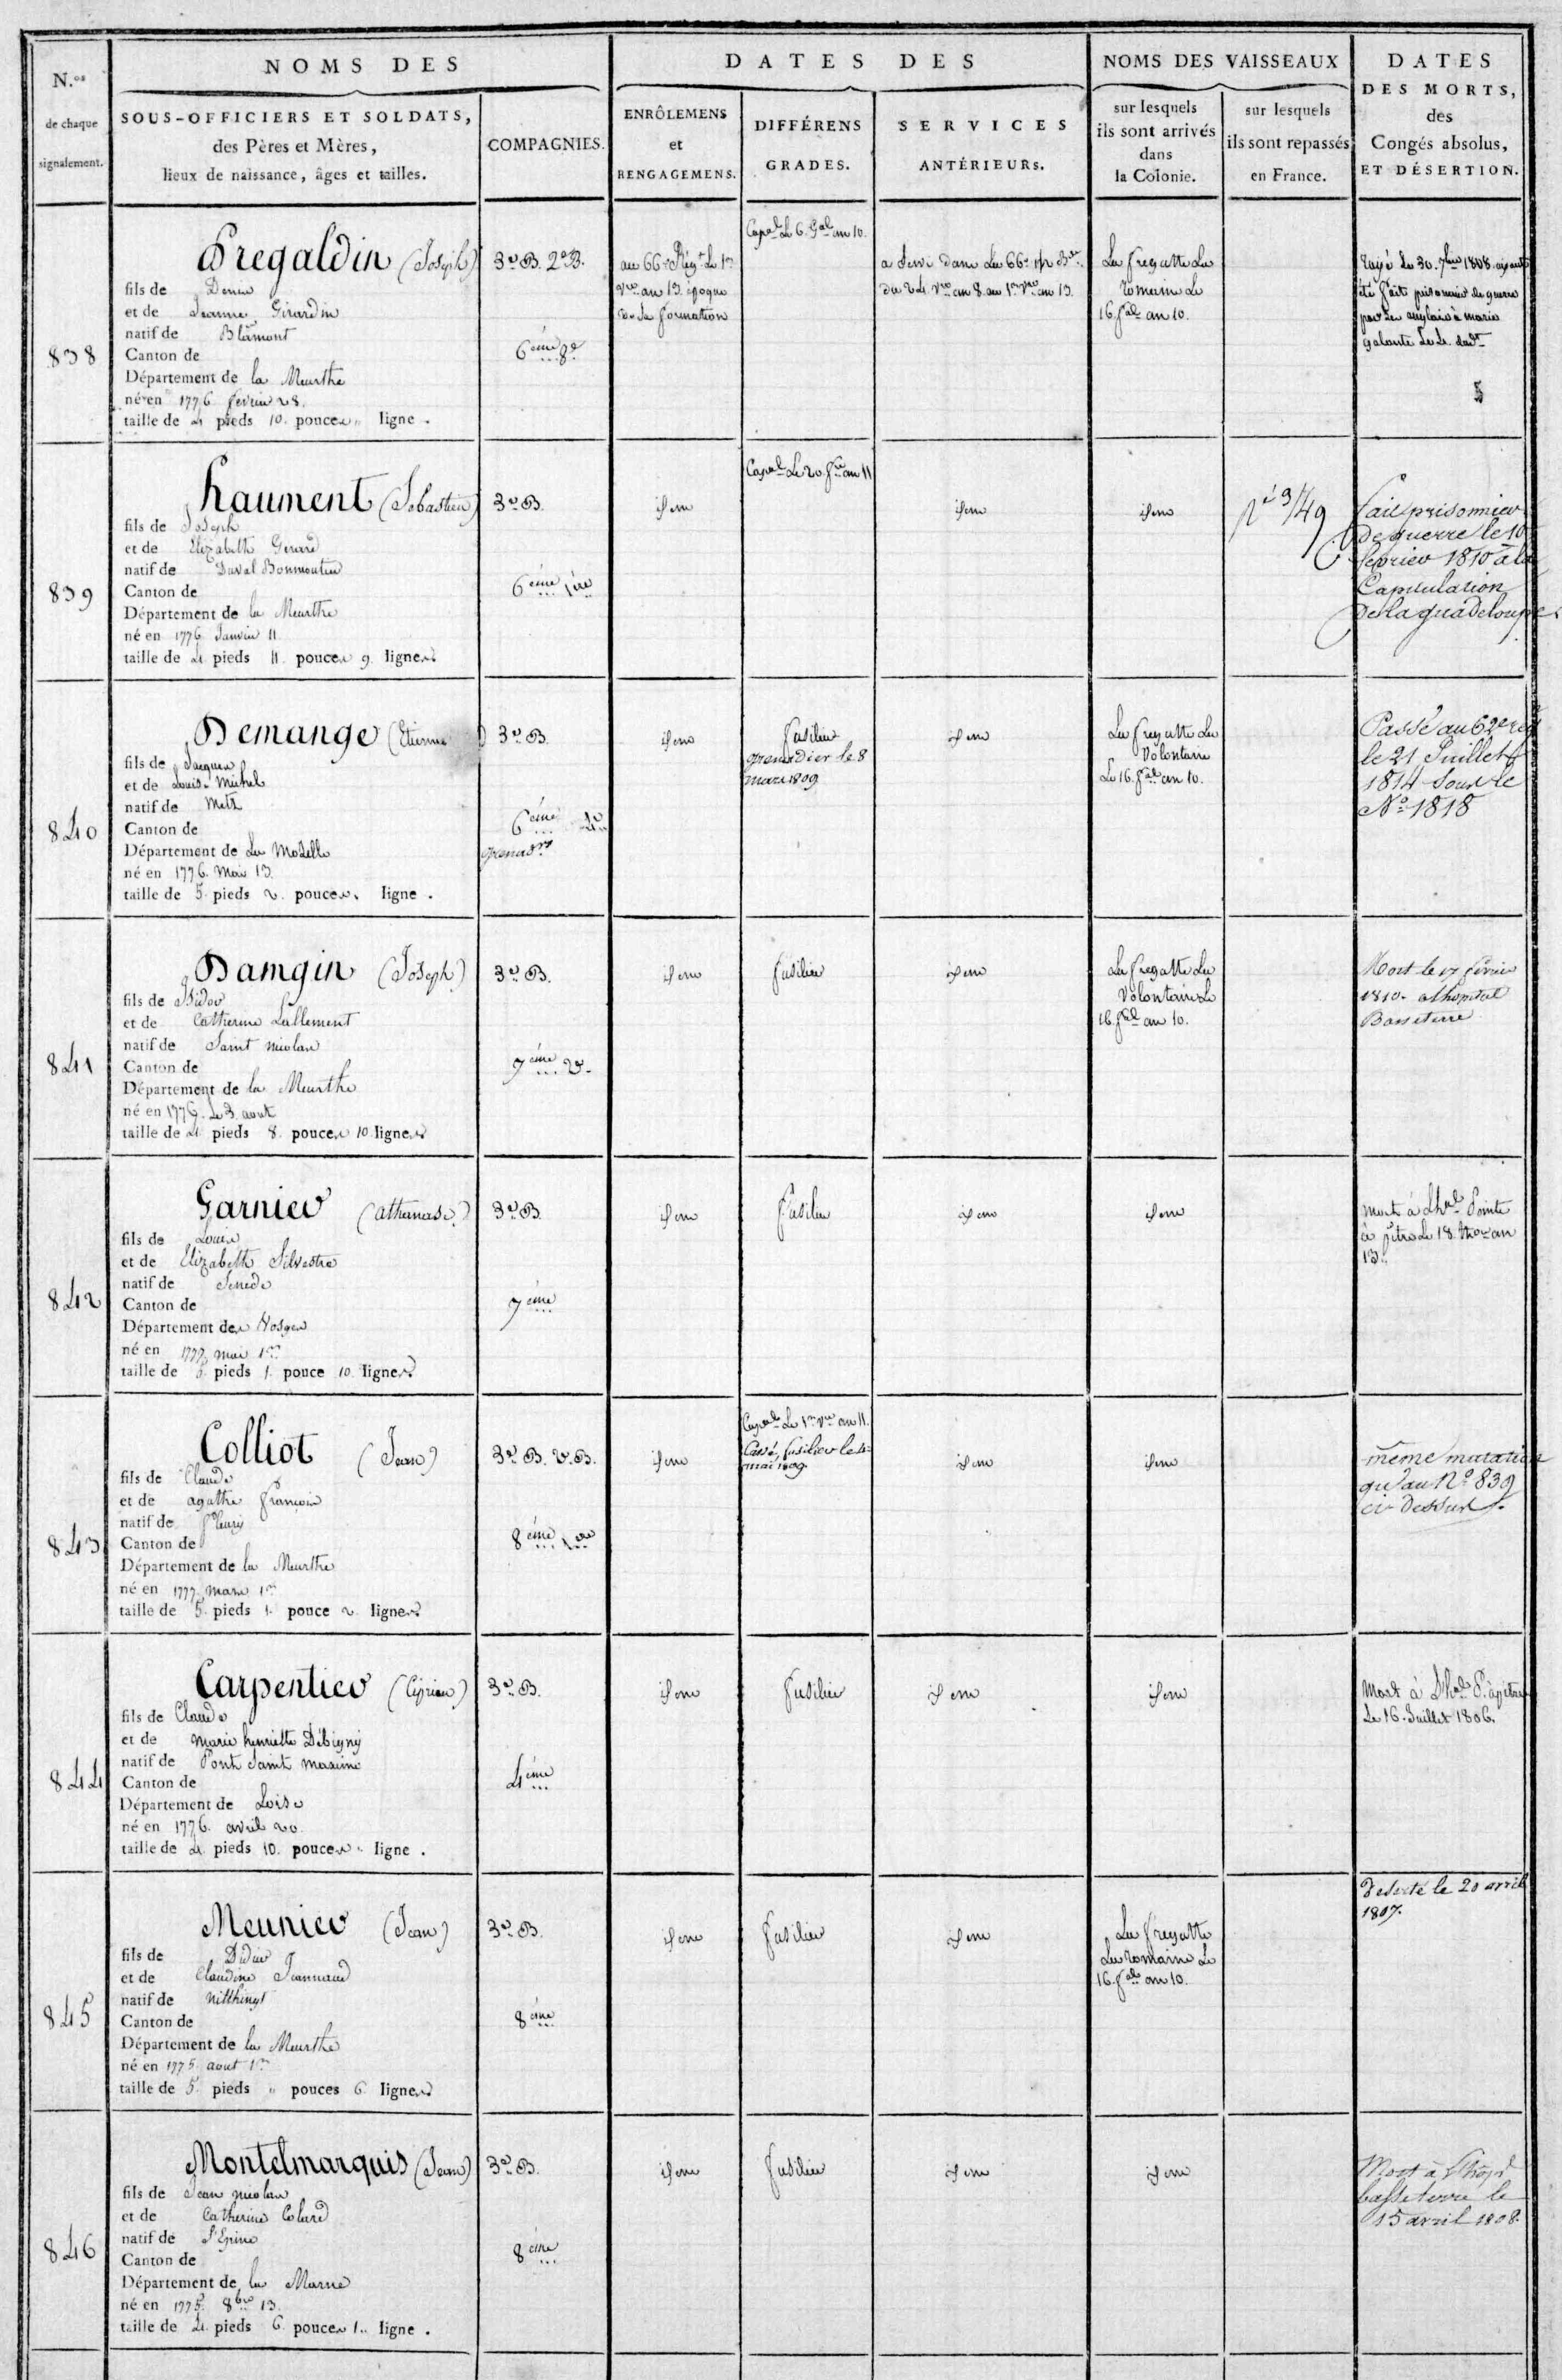 N.os
de chaque
signalement.
NOMS DES
SOUS-OFFICIERS ET SOLDATS,
des Pères et Mères,
lieux de naissance, âges et tailles.
COMPAGNIES.
DATES DES
ENRÔLEMENS
et
RENGAGEMENS.
DIFFÉRENS
GRADES.
SERVICES
ANTÉRIEURS.
NOMS DES VAISSEAUX
sur lesquels
ils sont arrivés
dans
la Colonie.
sur lesquels
ils sont repassés
en France.
DATES
DES MORTS,
des
Congés absolus,
ET DÉSERTION.
838
Pregaldin (Joseph)
fils de Denis
et de Jeanne Girardin
natif de Blamont
Canton de
Département de la Meurthe
né en 1776 fevrier 28.
taille de 4 pieds 10. pouces " ligne .
3e B. 2e B.
6ème 8e
au 66e Régt. Le 1er
Vre an 13. époque
de sa formation
Capal Le 6. Gal an 10.
a servi dans La 66e 1/2 Bde
du 24. Vre an 8. au 1er Vre an 13.
La fregatte La
romaine Le
16. fal an 10.
rayé Le 30. 7bre 1808. ayant
été fait prisonnier de guerre
par Les anglais à marie
galante Le dudt
839
haument (Sebastien)
fils de Joseph
et de Elizabeth Gerard
natif de Duval Bonmoutier
Canton de
Département de la Meurthe
né en 1776 Janvier 11
taille de 4 pieds 11. pouces 9. lignes
3e B.
6ème 1ère
idem
Capal Le 20. fre an 11
idem
idem
fait prisonnier
de guerre le 10
fevrier 1810 a la
Capitulation
de la guadeloupe.
840
Demange (Etienne)
fils de Jacques
et de Louise Michel
natif de Metz
Canton de
Département de La Moselle
né en 1776. Mai 13.
taille de 5. pieds 2. pouces. ligne .
3e B.
6ème 4e
grenadrs
idem
fusilier
grenadier le 8
mars 1809
idem
La fregatte La
Volontaire
Le 16. fal an 10.
Passé au 62e reg
le 21 Juillet
1814 sous le
No. 1818
841
Damgin (Joseph)
fils de Isidor
et de Catherine Lallement
natif de Saint nicolas
Canton de
Département de la Meurthe
né en 1776. Le 3. aout
taille de 4 pieds 8. pouces 10 lignes
3e B.
7ème 2e
idem
fusilier
idem
La fregatte La
Volontaire Le
16. fal an 10.
Mort le 17 fevrier
1810. a lhopital
Basseterre
842
Garnier (athanase)
fils de Louis
et de Elizabeth Silvestre
natif de
Canton de
Département des Vosges
né en 1777. mai 1er
taille de 5. pieds 1. pouce 10. lignes
3e B.
7ème
idem
fusilier
idem
idem
mort à Lhal Pointe
à pitre Le 18. thor an
13.
843
Colliot (Jean)
fils de Claude
et de agathe françois
natif de fleury
Canton de
Département de la Meurthe
né en 1777. Mars 1er
taille de 5. pieds 1. pouce 2. lignes
3e B. 2e B.
8ème 1ère
idem
Capal Le 1er Vre an 11.
Cassé, fusilier le 4
mai 1809.
idem
idem
même mutation
qu'au No. 839
ci dessus.
844
Carpentier (Ciprien)
fils de Claude
et de marie henriette Débigny
natif de Pont Saint maxime
Canton de
Département de Loise
né en 1776. avril 20.
taille de 4. pieds 10. pouces " ligne .
3e B.
4ème
idem
fusilier
idem
idem
Mort à Lhal P. àpitre
Le 16. Juillet 1806.
845
Meunier (Jean)
fils de Didier
et de Claudine Jeannaud
natif de Nitthings
Canton de
Département de la Meurthe
né en 1775. aout 1er
taille de 5. pieds " pouces 6. lignes
3e B.
8ème
idem
fusilier
idem
La fregatte
La romaine Le
16. fal an 10.
deserté le 20 avril
1807.
846
Montelmarquis (Jean)
fils de Jean nicolas
et de Catherine Colard
natif de L'Epine
Canton de
Département de la Marne
né en 1775. 8bre 13.
taille de 4. pieds 6. pouces 1.. ligne .
3e B.
8ème
idem
fusilier
idem
idem
Mort à l'hôpl
basse terre le
15 avril 1808.